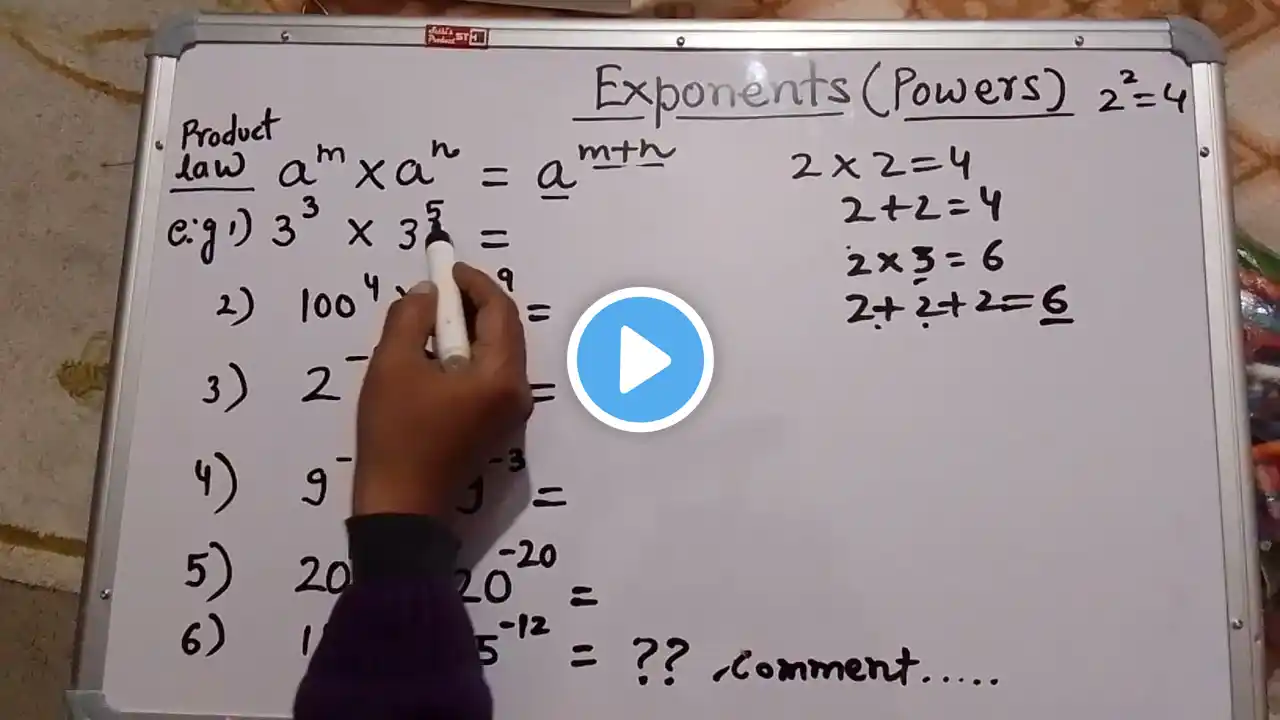 Exponents (Powers) 2² = 4
Product
law aᵐ × aⁿ = aᵐ⁺ⁿ
e.g 1) 3³ × 3⁵ =
2) 100⁴ × ⁹ =
3) 2⁻ =
4) 9⁻ 9⁻³ =
5) 20 20⁻²⁰ =
6) 1 5⁻¹² = ?? , comment.....
2 × 2 = 4
2 + 2 = 4
2 × 3 = 6
2 + 2 + 2 = 6